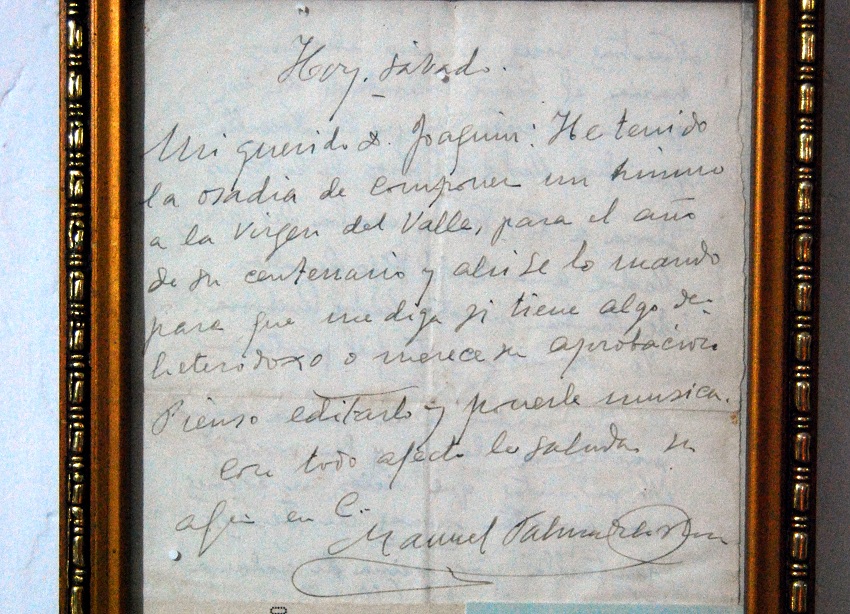 Hoy. sábado.
Mi querido D. Joaquin: He tenido
la osadia de componer un himno
a la Virgen del Valle, para el año
de su centenario y ahi se lo mando
para que me diga si tiene algo de
heterodoxo o merece su aprobacion.
Pienso editarlo y ponerle musica.
Con todo afecto le saluda su
afm en C.
Manuel